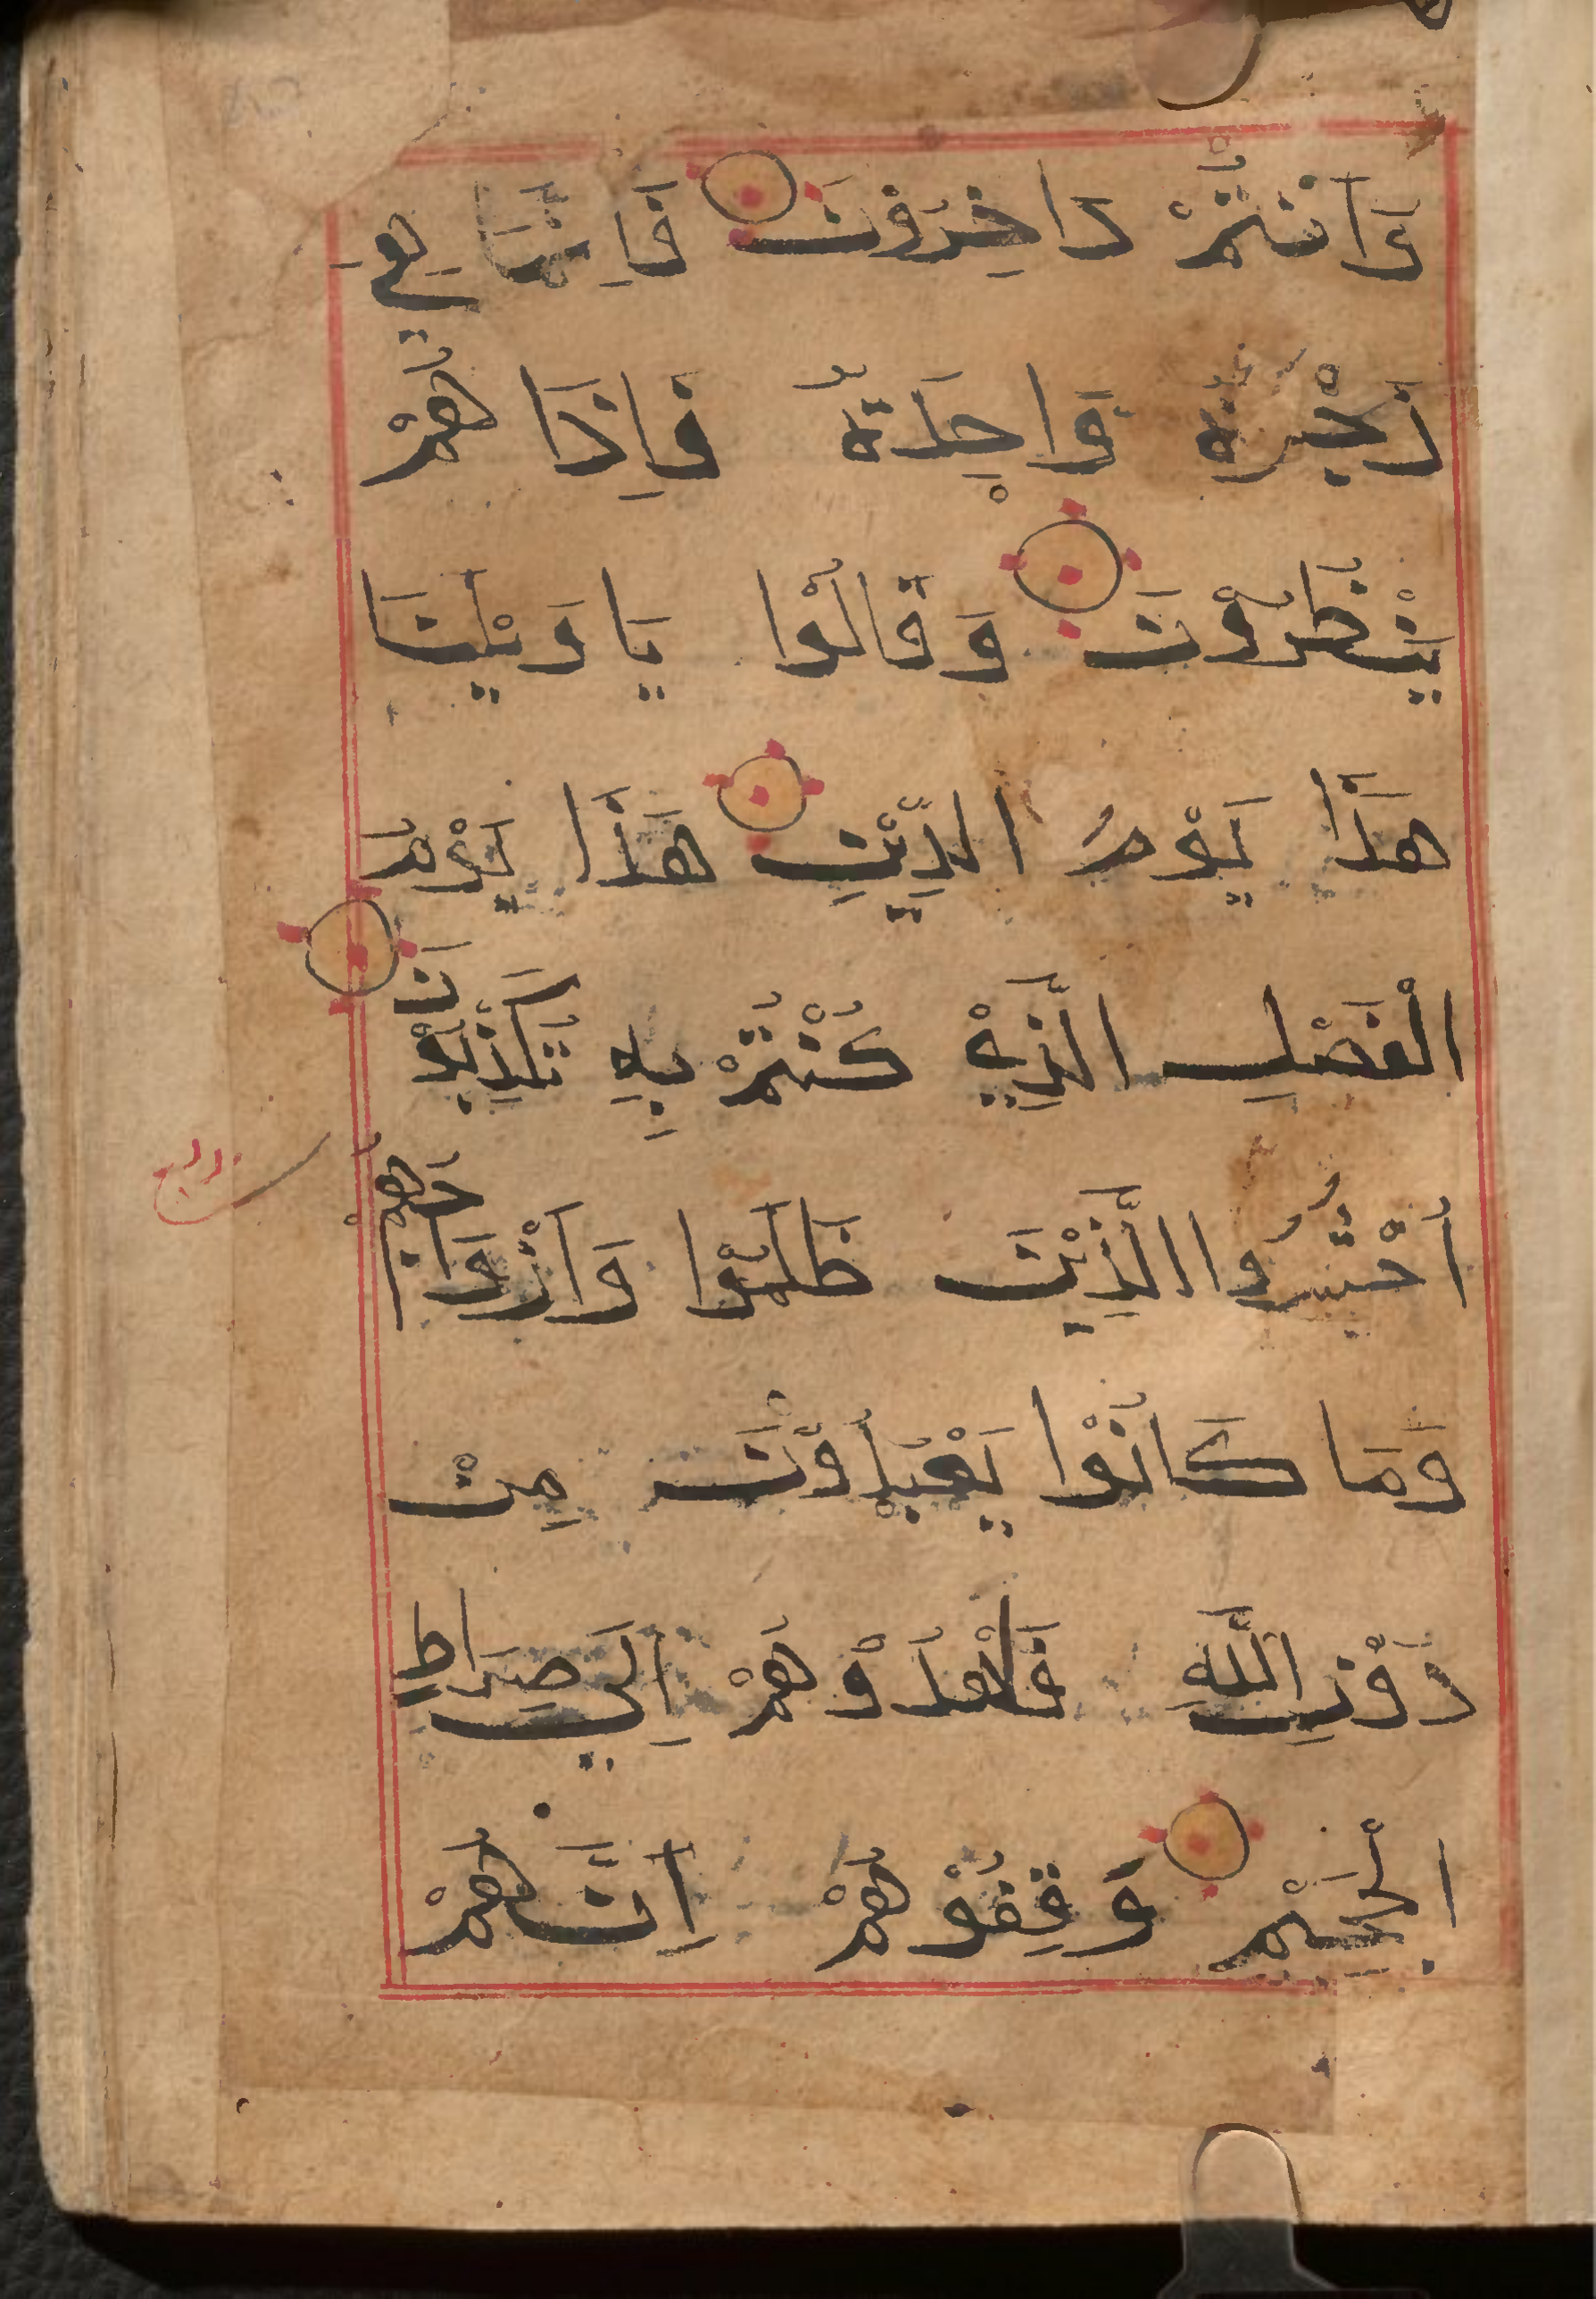 وَاَنْتُمْ دَاخِرُوْنَ فَاِنَّمَا هِيَ
زَجْرَةٌ وَّاحِدَةٌ فَاِذَا هُمْ
يَنْظُرُوْنَ وَقَالُوْا يَا وَيْلَنَا
هٰذَا يَوْمُ الدِّيْنِ هٰذَا يَوْمُ
الْفَصْلِ الَّذِيْ كُنْتُمْ بِهِ تُكَذِّبُوْنَ
اُحْشُرُوا الَّذِيْنَ ظَلَمُوْا وَاَزْوَاجَهُمْ
وَمَا كَانُوْا يَعْبُدُوْنَ مِنْ
دُوْنِ اللّٰهِ فَاهْدُوْهُمْ اِلَي صِرَاطِ
الْجَحِيْمِ وَقِفُوْهُمْ اِنَّهُمْ